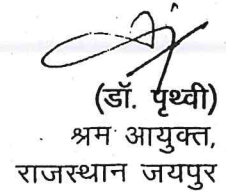 (डॉ. पृथ्वी)
श्रम आयुक्त,
राजस्थान जयपुर